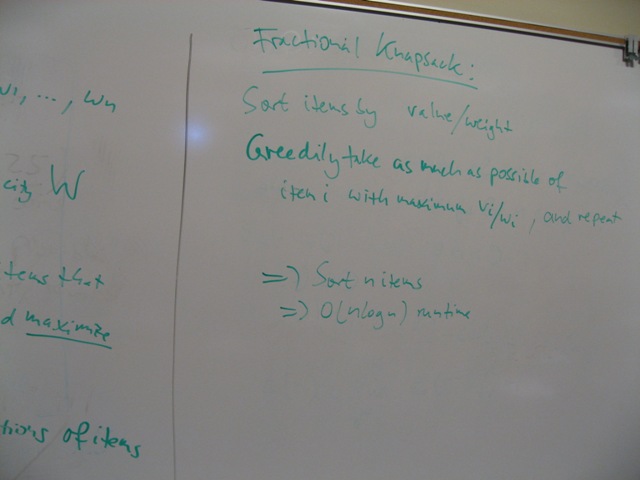 w1, ..., wn
city W
items that
d maximize
tions of items
Fractional Knapsack:
Sort items by value/weight
Greedily take as much as possible of
item i with maximum vi/wi, and repeat
=> Sort n items
=> O(nlogn) runtime